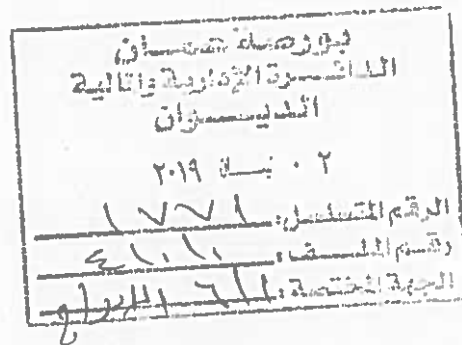 بورصة عمان
الدائرة الإدارية والمالية
الديوان
٠٢ نيسان ٢٠١٩
الرقم المتسلسل: ١٧٧١
رقم الملف:
الجهة المختصة: